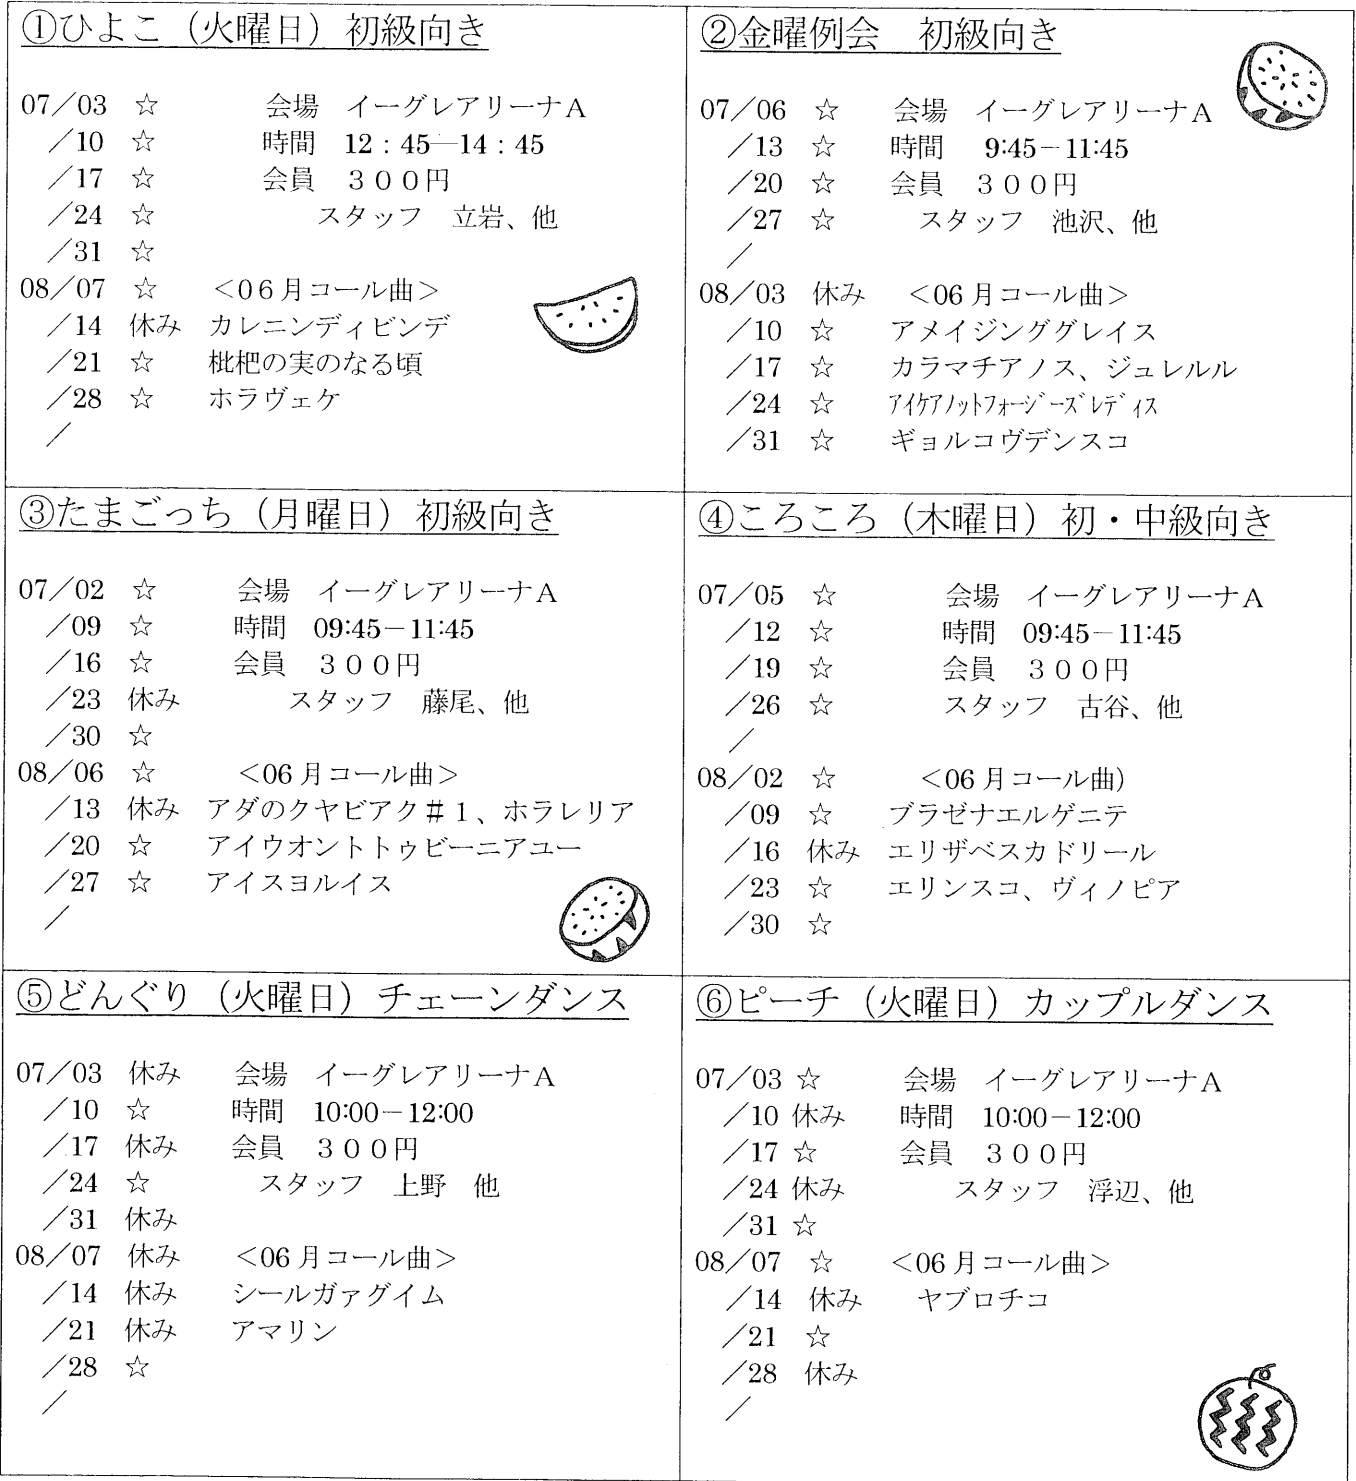 ①ひよこ（火曜日）初級向き
07／03　☆　会場　イーグレアリーナA
／10　☆　時間　12：45―14：45
／17　☆　会員　３００円
／24　☆　スタッフ　立岩、他
／31　☆
08／07　☆　＜０６月コール曲＞
／14　休み　カレニンディビンデ
／21　☆　枇杷の実のなる頃
／28　☆　ホラヴェケ
／
②金曜例会　初級向き
07／06　☆　会場　イーグレアリーナA
／13　☆　時間　9:45－11:45
／20　☆　会員　３００円
／27　☆　スタッフ　池沢、他
／
08／03　休み　＜06月コール曲＞
／10　☆　アメイジンググレイス
／17　☆　カラマチアノス、ジュレルル
／24　☆　ｱｲｹｱﾉｯﾄﾌｫｰｼﾞｰｽﾞﾚﾃﾞｨｽ
／31　☆　ギョルコヴデンスコ
③たまごっち（月曜日）初級向き
07／02　☆　会場　イーグレアリーナA
／09　☆　時間　09:45－11:45
／16　☆　会員　３００円
／23　休み　スタッフ　藤尾、他
／30　☆
08／06　☆　＜06月コール曲＞
／13　休み　アダのクヤビアク＃１、ホラレリア
／20　☆　アイウオントトゥビーニアユー
／27　☆　アイスヨルイス
／
④ころころ（木曜日）初・中級向き
07／05　☆　会場　イーグレアリーナA
／12　☆　時間　09:45－11:45
／19　☆　会員　３００円
／26　☆　スタッフ　古谷、他
／
08／02　☆　＜06月コール曲)
／09　☆　ブラゼナエルゲニテ
／16　休み　エリザベスカドリール
／23　☆　エリンスコ、ヴィノピア
／30　☆
⑤どんぐり（火曜日）チェーンダンス
07／03　休み　会場　イーグレアリーナA
／10　☆　時間　10:00－12:00
／17　休み　会員　３００円
／24　☆　スタッフ　上野　他
／31　休み
08／07　休み　＜06月コール曲＞
／14　休み　シールガァグイム
／21　休み　アマリン
／28　☆
／
⑥ピーチ（火曜日）カップルダンス
07／03　☆　会場　イーグレアリーナA
／10　休み　時間　10:00－12:00
／17　☆　会員　３００円
／24　休み　スタッフ　浮辺、他
／31　☆
08／07　☆　＜06月コール曲＞
／14　休み　ヤブロチコ
／21　☆
／28　休み
／